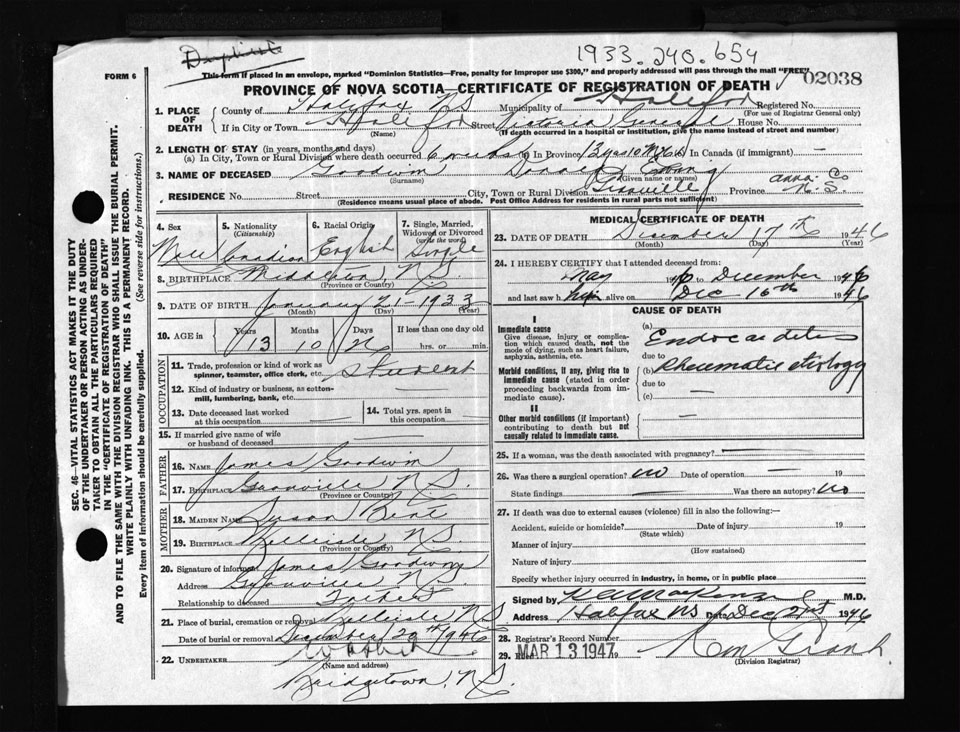 Duplicate
1933. 240. 654
FORM 6
This form if placed in an envelope, marked "Dominion Statistics—Free, penalty for improper use $300," and properly addressed will pass through the mail "FREE"
02038
PROVINCE OF NOVA SCOTIA—CERTIFICATE OF REGISTRATION OF DEATH
1. PLACE OF DEATH County of Halifax N.S. Municipality of Halifax Registered No.
(For use of Registrar General only)
If in City or Town Halifax Street Victoria General House No.
(Name) (If death occurred in a hospital or institution, give the name instead of street and number)
2. LENGTH OF STAY (in years, months and days)
(a) In City, Town or Rural Division where death occurred 6 weeks In Province 13 yrs 10 M In Canada (if immigrant) —
3. NAME OF DECEASED Goodwin Donald
(Surname) (Given name or names)
RESIDENCE No. Street City, Town or Rural Division Granville Province Anna. Co N.S.
(Residence means usual place of abode. Post Office Address for residents in rural parts not sufficient)
SEC. 46—VITAL STATISTICS ACT MAKES IT THE DUTY OF THE UNDERTAKER OR PERSON ACTING AS UNDERTAKER TO OBTAIN ALL THE PARTICULARS REQUIRED IN THE "CERTIFICATE OF REGISTRATION OF DEATH" AND TO FILE THE SAME WITH THE DIVISION REGISTRAR WHO SHALL ISSUE THE BURIAL PERMIT.
WRITE PLAINLY WITH UNFADING INK. THIS IS A PERMANENT RECORD.
Every item of information should be carefully supplied. (See reverse side for instructions.)
4. Sex Male
5. Nationality (Citizenship) Canadian
6. Racial Origin English
7. Single, Married, Widowed or Divorced (write the word) Single
8. BIRTHPLACE Middleton N.S.
(Province or Country)
9. DATE OF BIRTH January 21 - 1933
(Month) (Day) (Year)
10. AGE in Years 13 Months 10 Days If less than one day old hrs. or min.
OCCUPATION
11. Trade, profession or kind of work as spinner, teamster, office clerk, etc. Student
12. Kind of industry or business, as cotton-mill, lumbering, bank, etc. —
13. Date deceased last worked at this occupation
14. Total yrs. spent in this occupation
15. If married give name of wife or husband of deceased —
FATHER
16. NAME James Goodwin
17. BIRTHPLACE Granville N.S.
(Province or Country)
MOTHER
18. MAIDEN NAME Susan Bent
19. BIRTHPLACE Belleisle N.S.
(Province or Country)
20. Signature of informant James Goodwin
Address Granville N.S.
Relationship to deceased Father
21. Place of burial, cremation or removal Belleisle N.S.
Date of burial or removal December 20th 1946
22. UNDERTAKER
(Name and address)
Bridgetown, N.S.
MEDICAL CERTIFICATE OF DEATH
23. DATE OF DEATH December 17th 1946
(Month) (Day) (Year)
24. I HEREBY CERTIFY that I attended deceased from:
May 46 to December 1946
and last saw him alive on Dec 16th 1946
CAUSE OF DEATH
I
Immediate cause
Give disease, injury or complication which caused death, not the mode of dying, such as heart failure, asphyxia, asthenia, etc.
(a) Endocarditis
due to
Morbid conditions, if any, giving rise to immediate cause (stated in order proceeding backwards from immediate cause).
(b) Rheumatic etiology
due to —
(c)
II
Other morbid conditions (if important) contributing to death but not causally related to immediate cause.
—
25. If a woman, was the death associated with pregnancy? —
26. Was there a surgical operation? no Date of operation — 19
State findings — Was there an autopsy? no
27. If death was due to external causes (violence) fill in also the following:—
Accident, suicide or homicide? Date of injury 19
(State which)
Manner of injury
(How sustained)
Nature of injury
Specify whether injury occurred in industry, in home, or in public place
Signed by M.D.
Address Halifax NS Date Dec 21st 1946
28. Registrar's Record Number
29. MAR 13 1947
(Division Registrar)